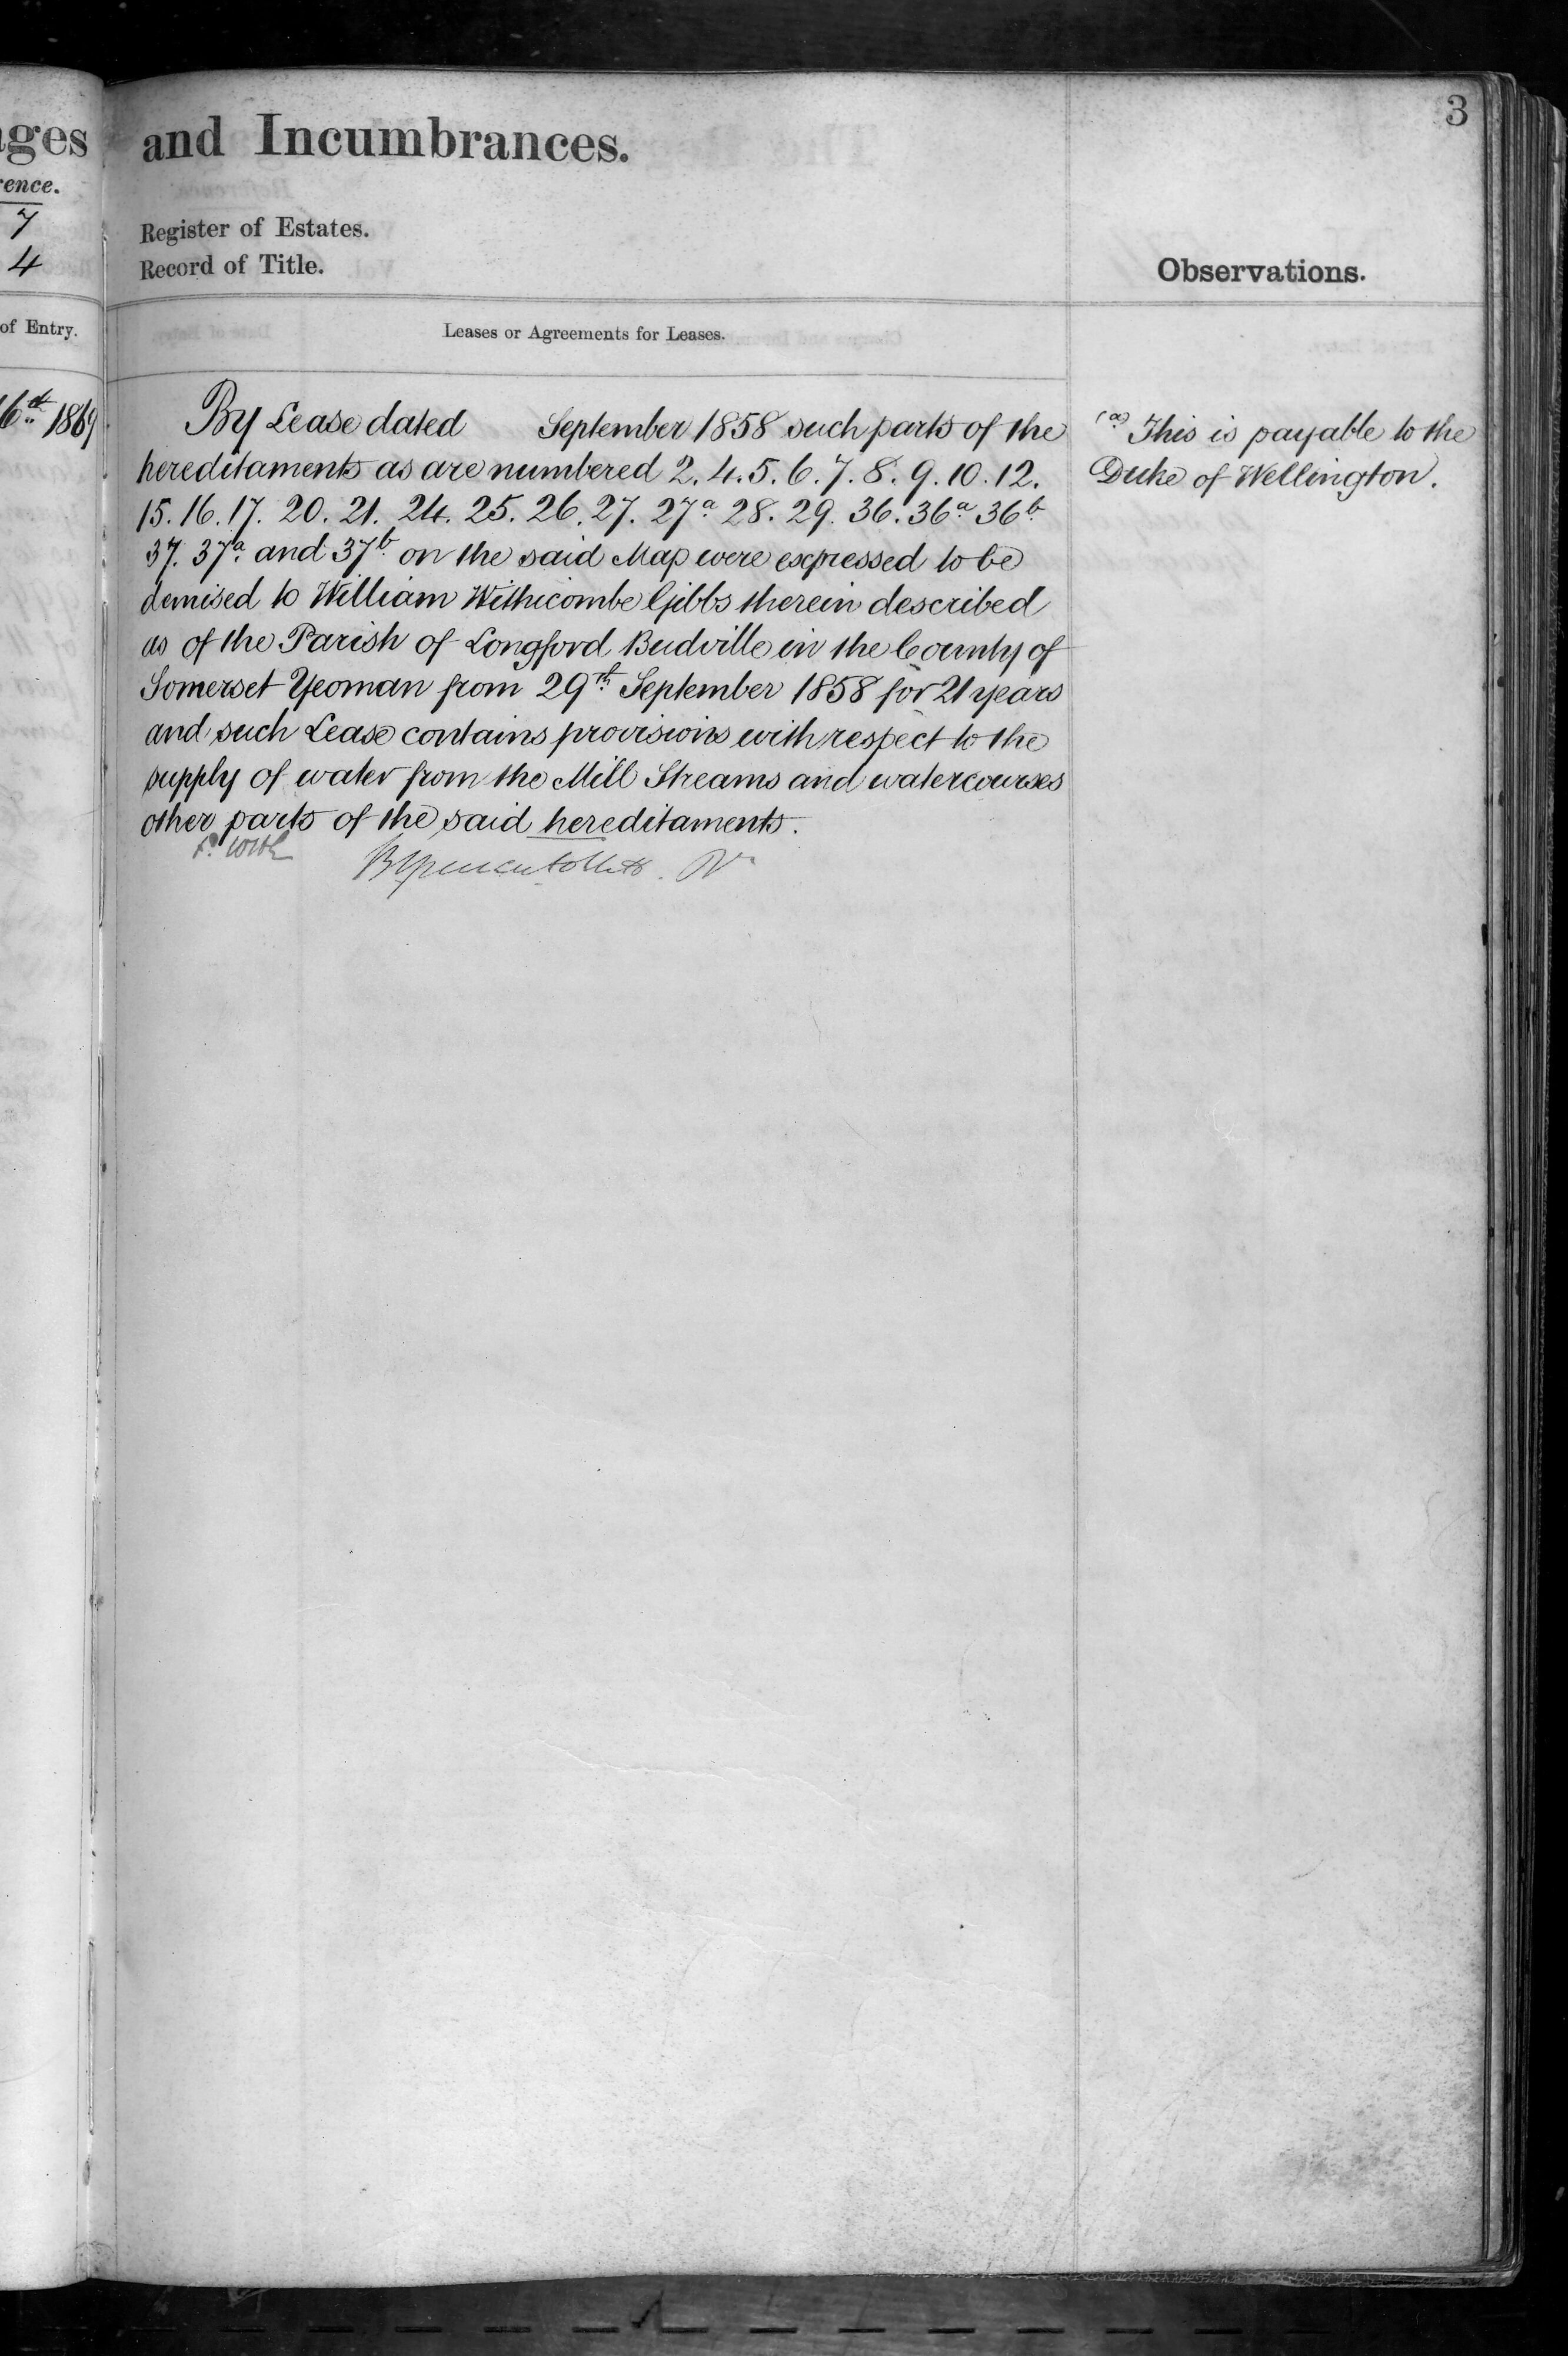 3
ages
and Incumbrances.
rence.
7
4
Register of Estates.
Record of Title.
Observations.
of Entry.
Leases or Agreements for Leases.
16th 1869
By Lease dated September 1858 such parts of the
hereditaments as are numbered 2. 4. 5. 6. 7. 8. 9. 10. 12.
15. 16. 17. 20. 21. 24. 25. 26. 27. 27a 28. 29. 36. 36a 36b.
37. 37a. and 37b. on the said Map were expressed to be
demised to William Withicombe Gibbs therein described
as of the Parish of Longford Budville in the County of
Somerset Yeoman from 29th September 1858 for 21 years
and such Lease contains provisions with respect to the
supply of water from the Mill Streams and watercourses
other parts of the said hereditaments.
(a) This is payable to the
Duke of Wellington.